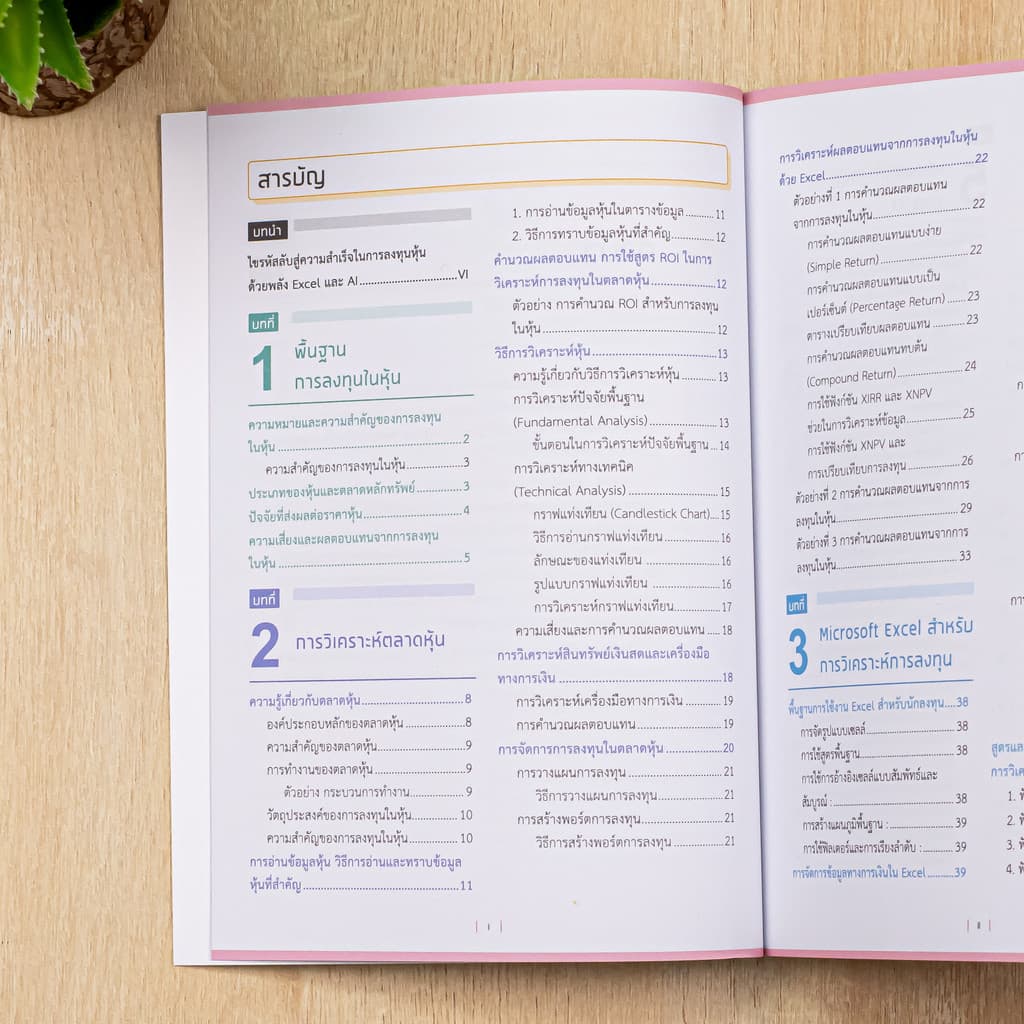 สารบัญ
บทนำ
ไขรหัสลับสู่ความสำเร็จในการลงทุนหุ้น
ด้วยพลัง Excel และ AI........................VI
บทที่
1
พื้นฐาน
การลงทุนในหุ้น
ความหมายและความสำคัญของการลงทุน
ในหุ้น ..............................................2
ความสำคัญของการลงทุนในหุ้น...............3
ประเภทของหุ้นและตลาดหลักทรัพย์...........3
ปัจจัยที่ส่งผลต่อราคาหุ้น.........................4
ความเสี่ยงและผลตอบแทนจากการลงทุน
ในหุ้น ..............................................5
บทที่
2
การวิเคราะห์ตลาดหุ้น
ความรู้เกี่ยวกับตลาดหุ้น..........................8
องค์ประกอบหลักของตลาดหุ้น ...............8
ความสำคัญของตลาดหุ้น......................9
การทำงานของตลาดหุ้น.......................9
ตัวอย่าง กระบวนการทำงาน................9
วัตถุประสงค์ของการลงทุนในหุ้น............10
ความสำคัญของการลงทุนในหุ้น.............10
การอ่านข้อมูลหุ้น วิธีการอ่านและทราบข้อมูล
หุ้นที่สำคัญ.......................................11
1. การอ่านข้อมูลหุ้นในตารางข้อมูล..........11
2. วิธีการทราบข้อมูลหุ้นที่สำคัญ.............12
คำนวณผลตอบแทน การใช้สูตร ROI ในการ
วิเคราะห์การลงทุนในตลาดหุ้น..................12
ตัวอย่าง การคำนวณ ROI สำหรับการลงทุน
ในหุ้น..............................................12
วิธีการวิเคราะห์หุ้น................................13
ความรู้เกี่ยวกับวิธีการวิเคราะห์หุ้น...........13
การวิเคราะห์ปัจจัยพื้นฐาน
(Fundamental Analysis)....................13
ขั้นตอนในการวิเคราะห์ปัจจัยพื้นฐาน...14
การวิเคราะห์ทางเทคนิค
(Technical Analysis) ........................15
กราฟแท่งเทียน (Candlestick Chart)...15
วิธีการอ่านกราฟแท่งเทียน................16
ลักษณะของแท่งเทียน .....................16
รูปแบบกราฟแท่งเทียน ....................16
การวิเคราะห์กราฟแท่งเทียน..............17
ความเสี่ยงและการคำนวณผลตอบแทน ....18
การวิเคราะห์สินทรัพย์เงินสดและเครื่องมือ
ทางการเงิน ........................................18
การวิเคราะห์เครื่องมือทางการเงิน ..........19
การคำนวณผลตอบแทน.......................19
การจัดการการลงทุนในตลาดหุ้น ...............20
การวางแผนการลงทุน .........................21
วิธีการวางแผนการลงทุน..................21
การสร้างพอร์ตการลงทุน.....................21
วิธีการสร้างพอร์ตการลงทุน ..............21
I
การวิเคราะห์ผลตอบแทนจากการลงทุนในหุ้น
ด้วย Excel.........................................22
ตัวอย่างที่ 1 การคำนวณผลตอบแทน
จากการลงทุนในหุ้น............................22
การคำนวณผลตอบแทนแบบง่าย
(Simple Return) ...........................22
การคำนวณผลตอบแทนแบบเป็น
เปอร์เซ็นต์ (Percentage Return) ......23
ตารางเปรียบเทียบผลตอบแทน ..........23
การคำนวณผลตอบแทนทบต้น
(Compound Return) ....................24
การใช้ฟังก์ชัน XIRR และ XNPV
ช่วยในการวิเคราะห์ข้อมูล..................25
การใช้ฟังก์ชัน XNPV และ
การเปรียบเทียบการลงทุน ................26
ตัวอย่างที่ 2 การคำนวณผลตอบแทนจากการ
ลงทุนในหุ้น......................................29
ตัวอย่างที่ 3 การคำนวณผลตอบแทนจากการ
ลงทุนในหุ้น......................................33
บทที่
3
Microsoft Excel สำหรับ
การวิเคราะห์การลงทุน
พื้นฐานการใช้งาน Excel สำหรับนักลงทุน....38
การจัดรูปแบบเซลล์............................38
การใช้สูตรพื้นฐาน..............................38
การใช้การอ้างอิงเซลล์แบบสัมพัทธ์และ
สัมบูรณ์ : ........................................38
การสร้างแผนภูมิพื้นฐาน : ...................39
การใช้ฟิลเตอร์และการเรียงลำดับ :..........39
การจัดการข้อมูลทางการเงินใน Excel.........39
II
สูตรและ
การวิเค
1.
2.
3.
4.